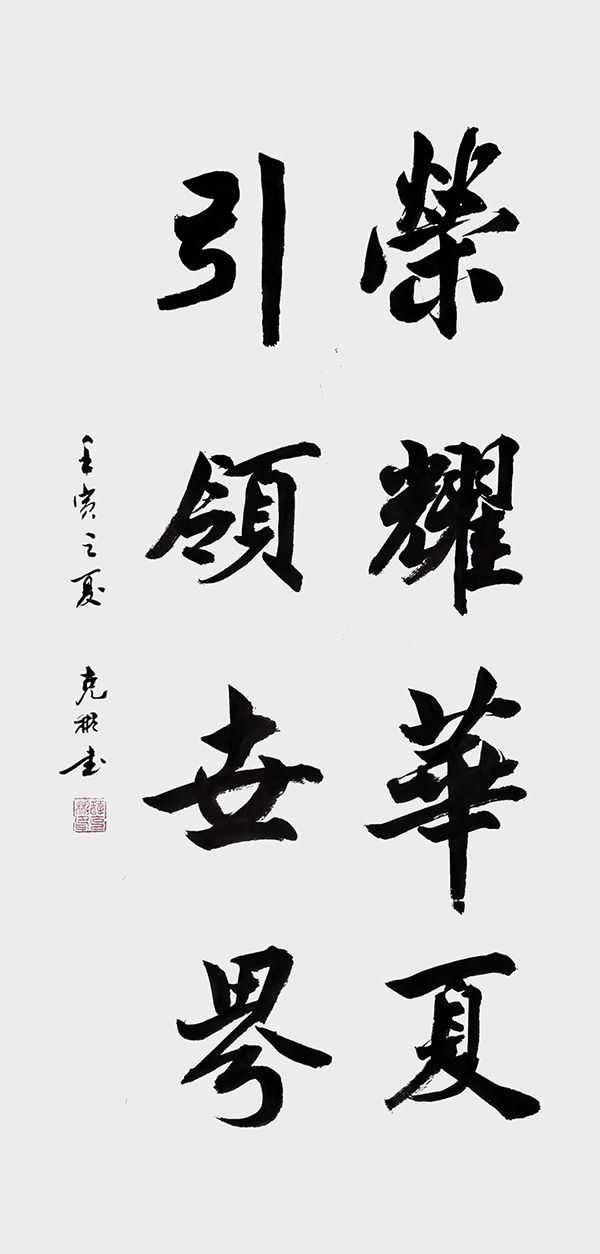 榮耀華夏
引領世界
壬寅之夏 克彬書